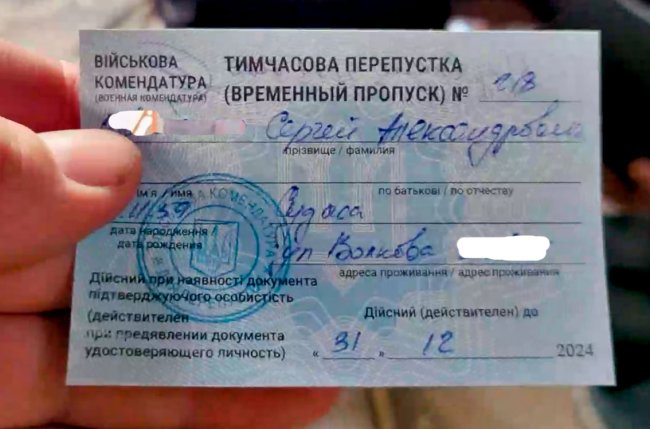 ВІЙСЬКОВА КОМЕНДАТУРА
(ВОЕННАЯ КОМЕНДАТУРА)
ТИМЧАСОВА ПЕРЕПУСТКА
(ВРЕМЕННЫЙ ПРОПУСК) №
Сергей Александрович
прізвище / фамилия
ім'я / имя
по батькові / по отчеству
Суджа
дата народження /
дата рождения
ул Волкова
адреса проживання / адрес проживания
Дійсний при наявності документа
підтверджуючого особистість
(действителен
при предявлении документа
удостоверяющего личность)
Дійсний (действителен) до
« 31 » 12 2024